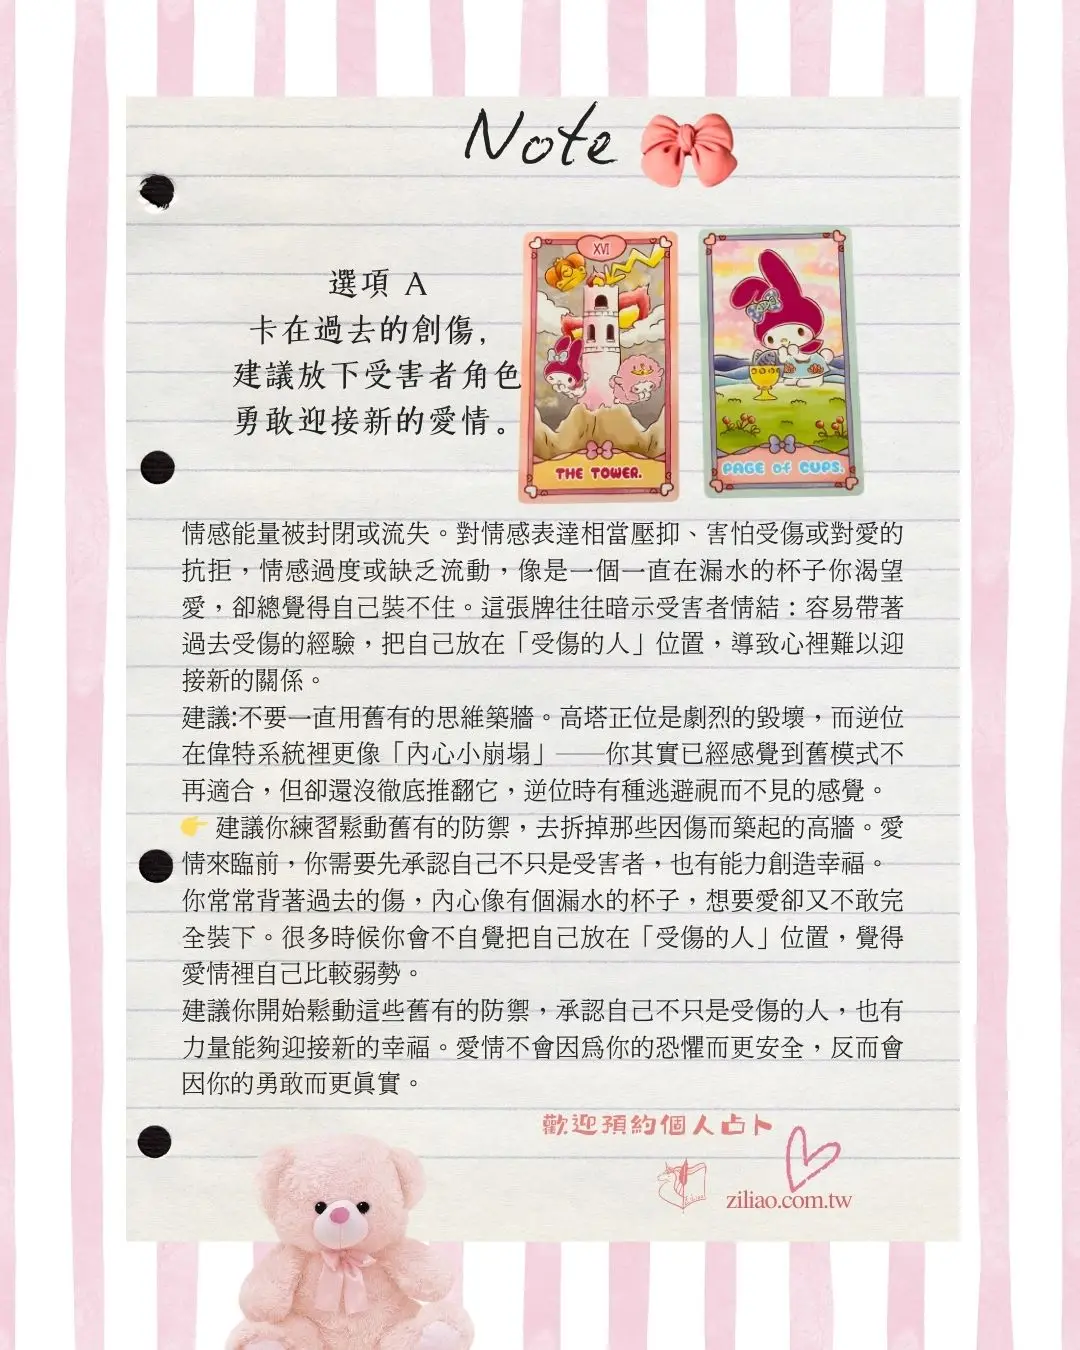 Note
選項 A
卡在過去的創傷,
建議放下受害者角色
勇敢迎接新的愛情。
XVI
THE TOWER.
PAGE OF CUPS.
情感能量被封閉或流失。對情感表達相當壓抑、害怕受傷或對愛的
抗拒，情感過度或缺乏流動，像是一個一直在漏水的杯子你渴望
愛，卻總覺得自己裝不住。這張牌往往暗示受害者情結：容易帶著
過去受傷的經驗，把自己放在「受傷的人」位置，導致心裡難以迎
接新的關係。
建議:不要一直用舊有的思維築牆。高塔正位是劇烈的毀壞，而逆位
在偉特系統裡更像「內心小崩塌」——你其實已經感覺到舊模式不
再適合，但卻還沒徹底推翻它，逆位時有種逃避視而不見的感覺。
👉 建議你練習鬆動舊有的防禦，去拆掉那些因傷而築起的高牆。愛
情來臨前，你需要先承認自己不只是受害者，也有能力創造幸福。
你常常背著過去的傷，內心像有個漏水的杯子，想要愛卻又不敢完
全裝下。很多時候你會不自覺把自己放在「受傷的人」位置，覺得
愛情裡自己比較弱勢。
建議你開始鬆動這些舊有的防禦，承認自己不只是受傷的人，也有
力量能夠迎接新的幸福。愛情不會因為你的恐懼而更安全，反而會
因你的勇敢而更真實。
歡迎預約個人占卜
ziliao.com.tw